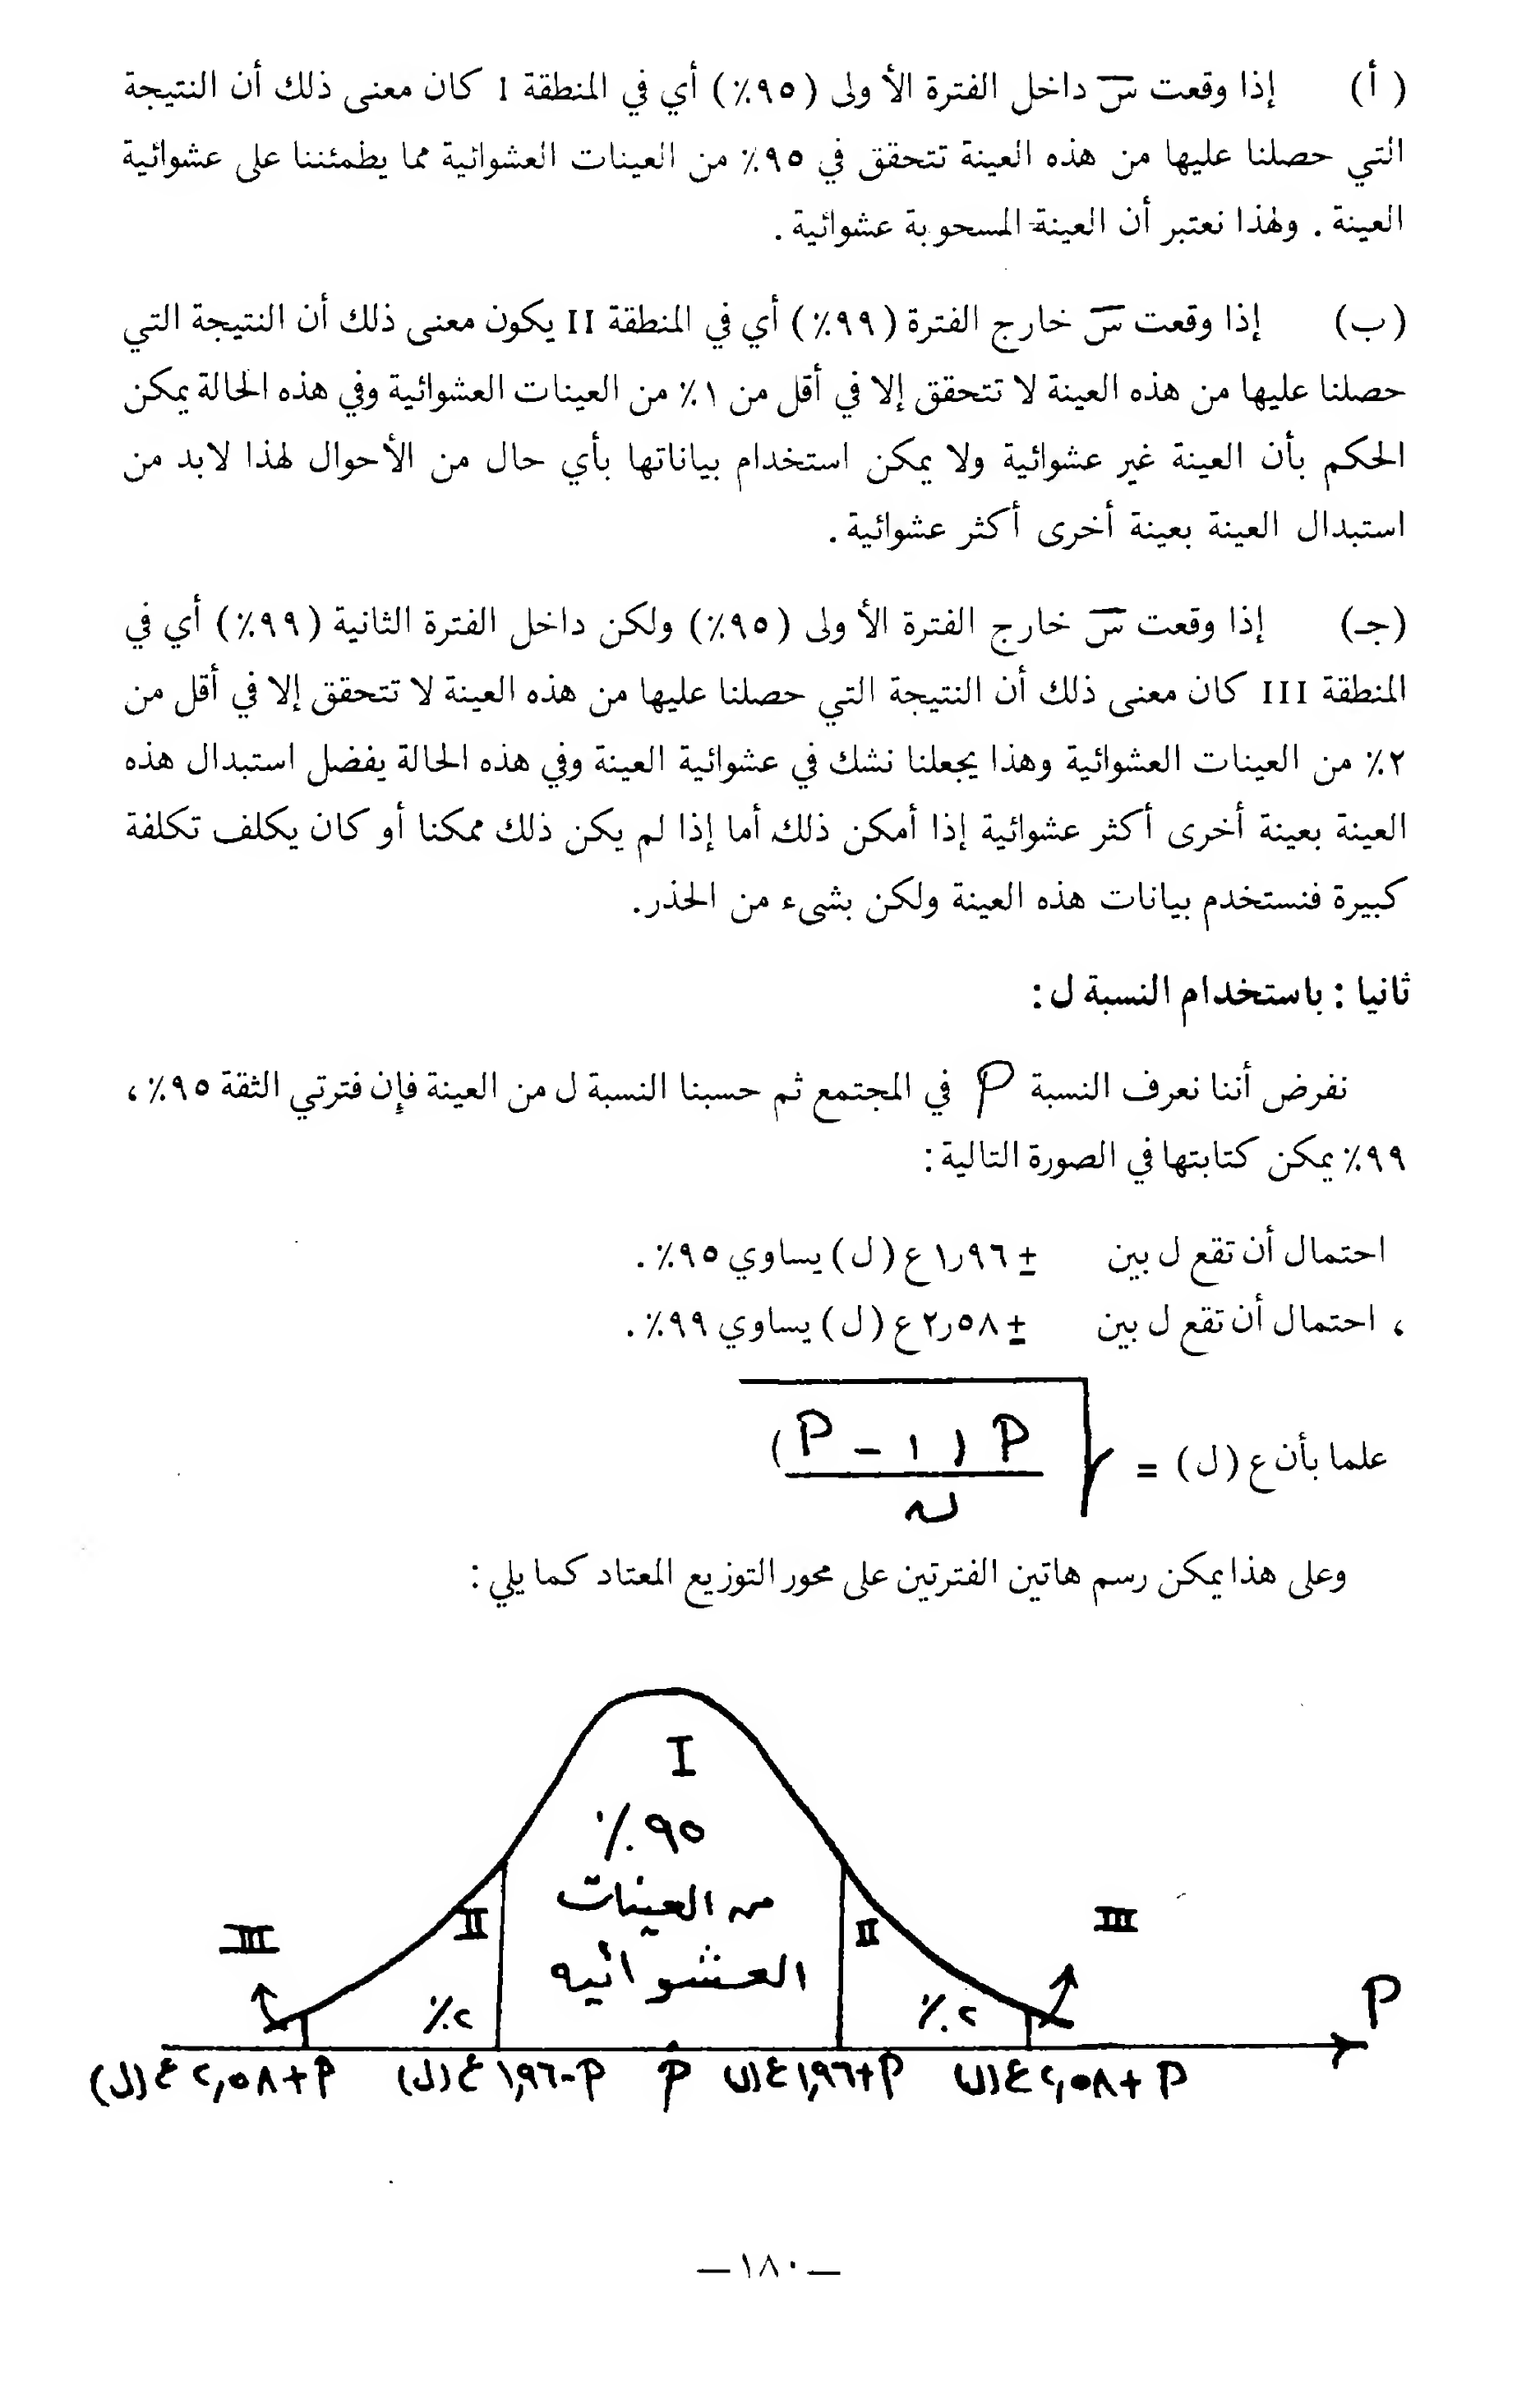 (أ) إذا وقعت س̅ داخل الفترة الأولى (٩٥٪) أي في المنطقة I كان معنى ذلك أن النتيجة
التي حصلنا عليها من هذه العينة تتحقق في ٩٥٪ من العينات العشوائية مما يطمئننا على عشوائية
العينة . ولهذا نعتبر أن العينة المسحوبة عشوائية .
(ب) إذا وقعت س̅ خارج الفترة (٩٩٪) أي في المنطقة II يكون معنى ذلك أن النتيجة التي
حصلنا عليها من هذه العينة لا تتحقق إلا في أقل من ١٪ من العينات العشوائية وفي هذه الحالة يمكن
الحكم بأن العينة غير عشوائية ولا يمكن استخدام بياناتها بأي حال من الأحوال لهذا لابد من
استبدال العينة بعينة أخرى أكثر عشوائية .
(جـ) إذا وقعت س̅ خارج الفترة الأولى (٩٥٪) ولكن داخل الفترة الثانية (٩٩٪) أي في
المنطقة III كان معنى ذلك أن النتيجة التي حصلنا عليها من هذه العينة لا تتحقق إلا في أقل من
٢٪ من العينات العشوائية وهذا يجعلنا نشك في عشوائية العينة وفي هذه الحالة يفضل استبدال هذه
العينة بعينة أخرى أكثر عشوائية إذا أمكن ذلك أما إذا لم يكن ذلك ممكنا أو كان يكلف تكلفة
كبيرة فنستخدم بيانات هذه العينة ولكن بشىء من الحذر.
ثانيا : باستخدام النسبة ل :
نفرض أننا نعرف النسبة P في المجتمع ثم حسبنا النسبة ل من العينة فإن فترتي الثقة ٩٥٪ ،
٩٩٪ يمكن كتابتها في الصورة التالية :
احتمال أن تقع ل بين ± ١٫٩٦ ع (ل) يساوي ٩٥٪ .
، احتمال أن تقع ل بين ± ٢٫٥٨ ع (ل) يساوي ٩٩٪ .
علما بأن ع (ل) = √ P (١ - P)
ن
وعلى هذا يمكن رسم هاتين الفترتين على محور التوزيع المعتاد كما يلي :
I
٩٥٪
من العينات
العشوائيه
III II II III
٢٪ ٢٪
P
P + ٢,٥٨ ع (ل) P + ١,٩٦ ع (ل) P P - ١,٩٦ ع (ل) P + ٢,٥٨ ع (ل)
— ١٨٠ —